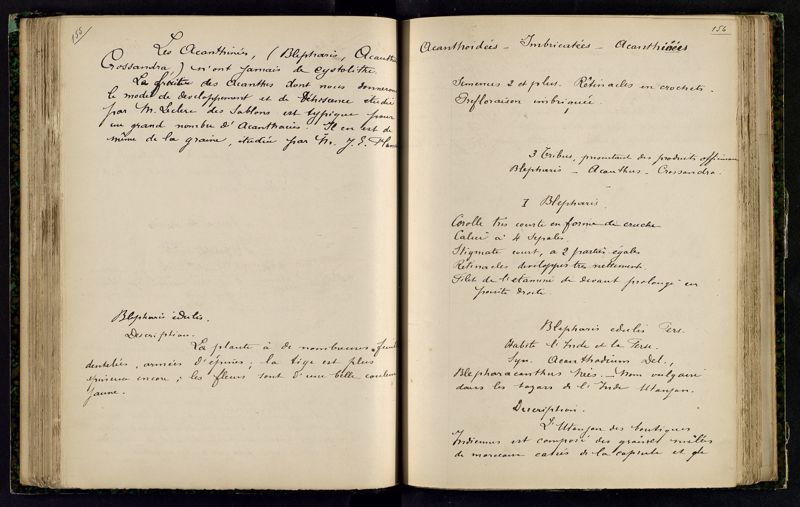 155
Les Acanthinés, (Blepharis, Acanthus
Crossandra,) n'ont jamais de cystolithe.
La fruite des Acanthus dont nous donnerons
le mode de developpement et de déhiscence étudié
par M. Leclerc des Sablons est typique pour
un grand nombre d'Acanthacées. Il en est de
même de la graine, étudiée par M. J. E. Planc
Blepharis edulis.
Description.
La plante à de nombreuses feuil
dentelées, armées d'épines; la tige est plus
épineuse encore; les fleurs sont d'une belle couleur
jaune.
156
Acanthoidées - Imbricatées - Acanthinées
Semences 2 et plus. Rétinacles en crochets.
Préfloraison imbriquée.
3 Tribus, presentant des produits officinaux
Blepharis - Acanthus - Crossandra.
I Blepharis.
Corolle très courte en forme de cruche
Calice à 4 sépales.
Stigmate court, a 2 parties égales
Rétinacles developpés très nettement.
Filet de l'étamine de devant prolongé en
pointe droite.
Blepharis edulis Pers.
Habite l'Inde et la Perse.
Syn. Acanthodium Del.,
Blepharacanthus Nées. - Nom vulgaire
dans les bazars de l'Inde Utanjan.
Description.
L'Utanjan des boutiques
Indiennes est composé des graines mêlées
de morceaux cassés de la capsule et de